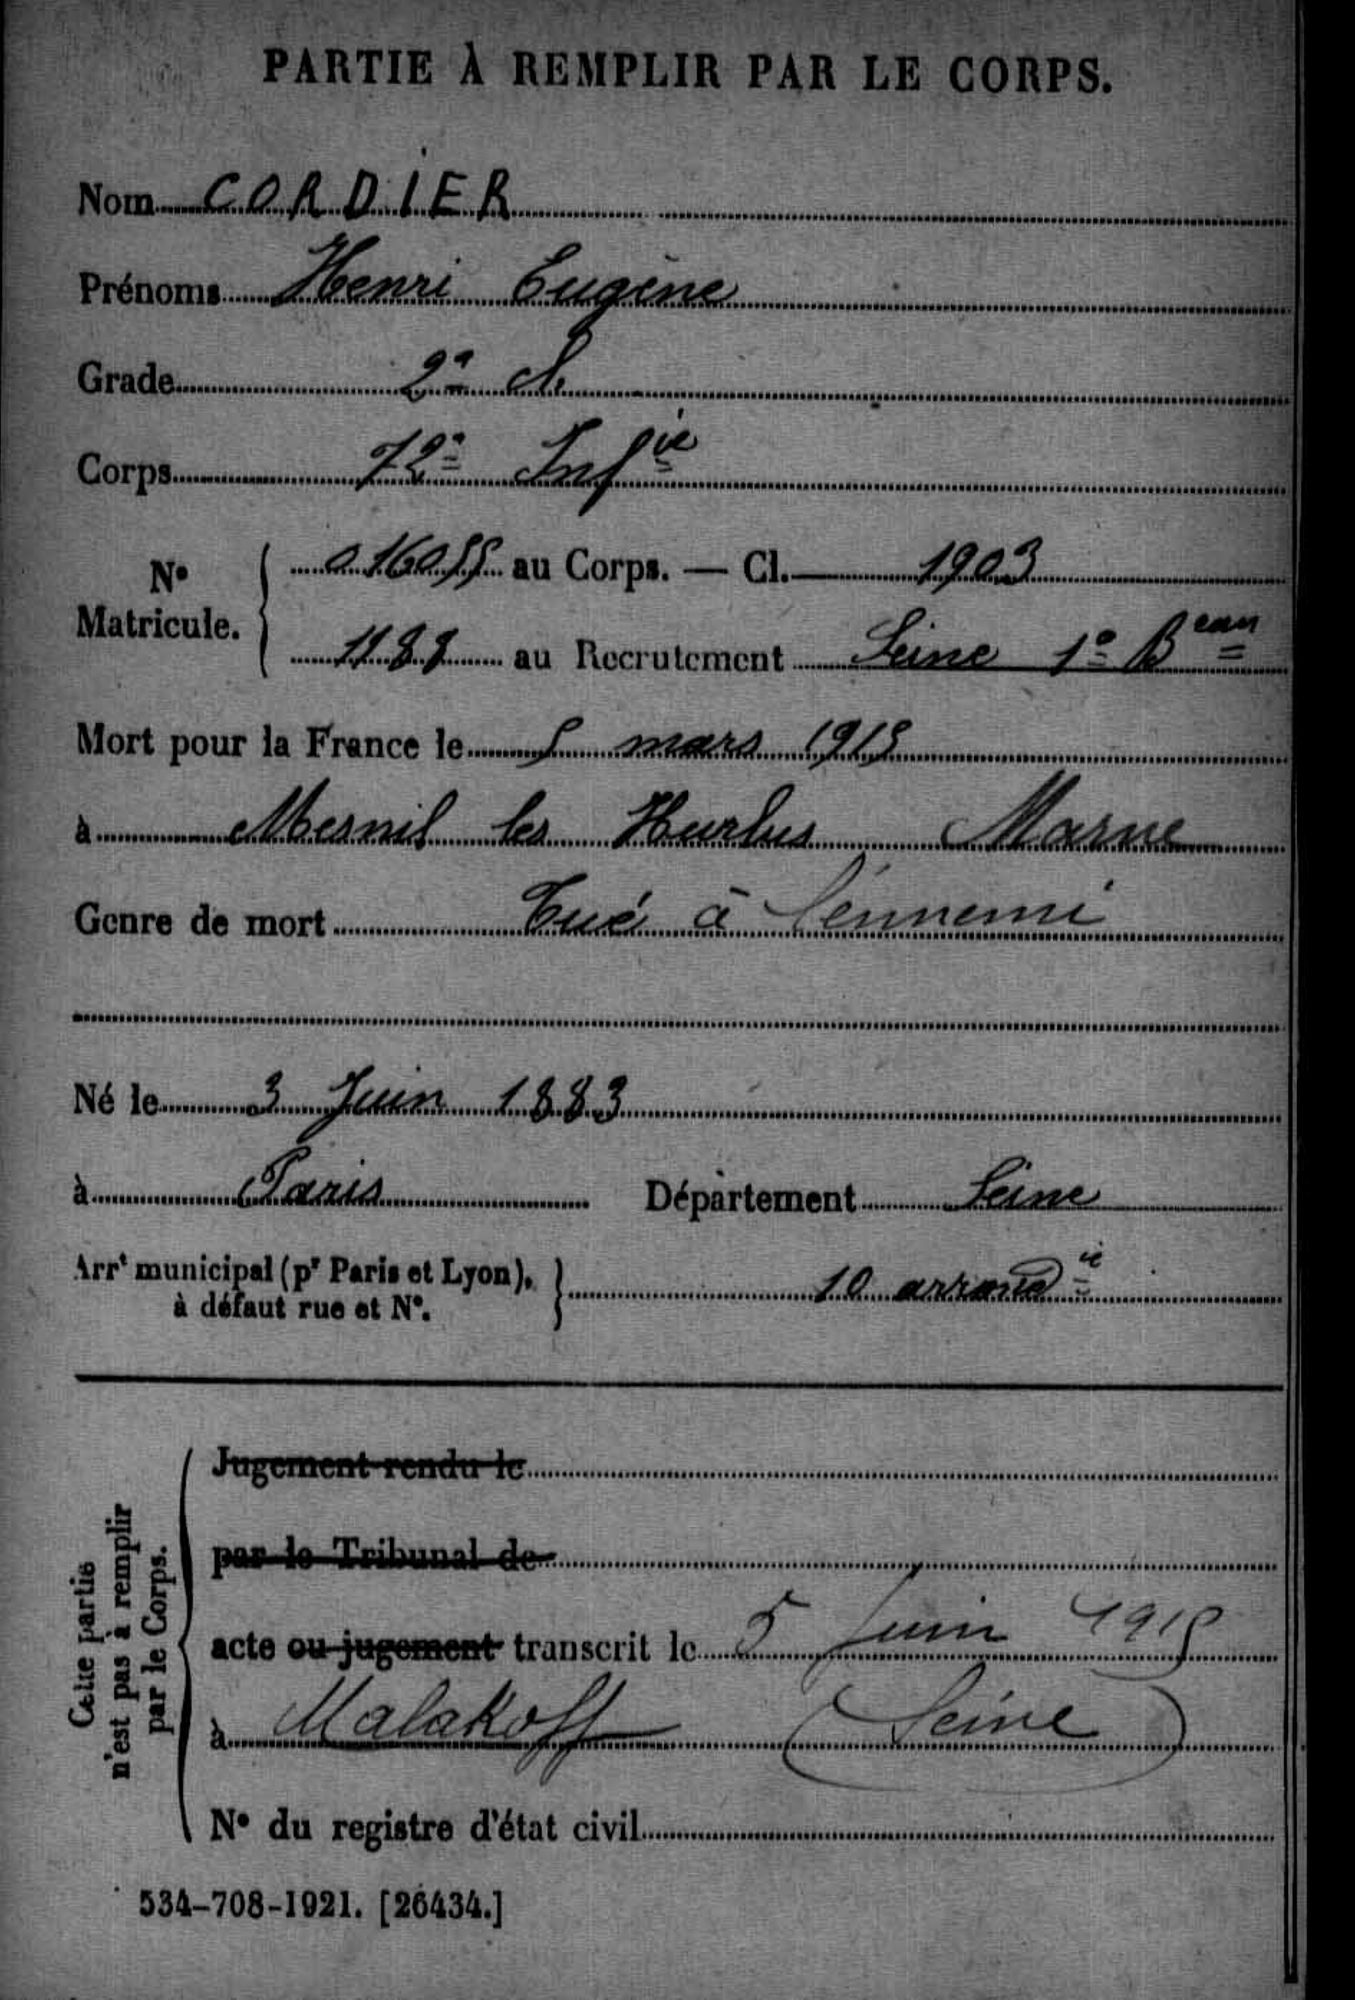 PARTIE À REMPLIR PAR LE CORPS.
Nom CORDIER
Prénoms Henri Eugène
Grade 2e cl.
Corps 72e Infie
No Matricule. 016055 au Corps. — Cl. 1903
1188 au Recrutement Seine 1o Beau
Mort pour la France le 5 mars 1915
à Mesnil les Hurlus Marne
Genre de mort Tué à l'ennemi
Né le 3 Juin 1883
à Paris Département Seine
Arrt municipal (pr Paris et Lyon), à défaut rue et No. 10 arrond
Cette partie n'est pas à remplir par le Corps.
Jugement rendu le
par le Tribunal de
acte ou jugement transcrit le 5 Juin 1915
à Malakoff (Seine)
No du registre d'état civil
534-708-1921. [26434.]